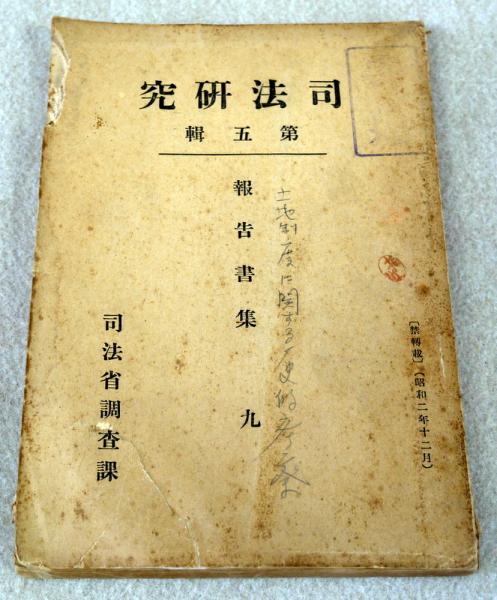 司法研究
第五輯
報告書集 九
土地制度に関する歴史的考察
司法省調査課
［禁轉載］（昭和二年十二月）